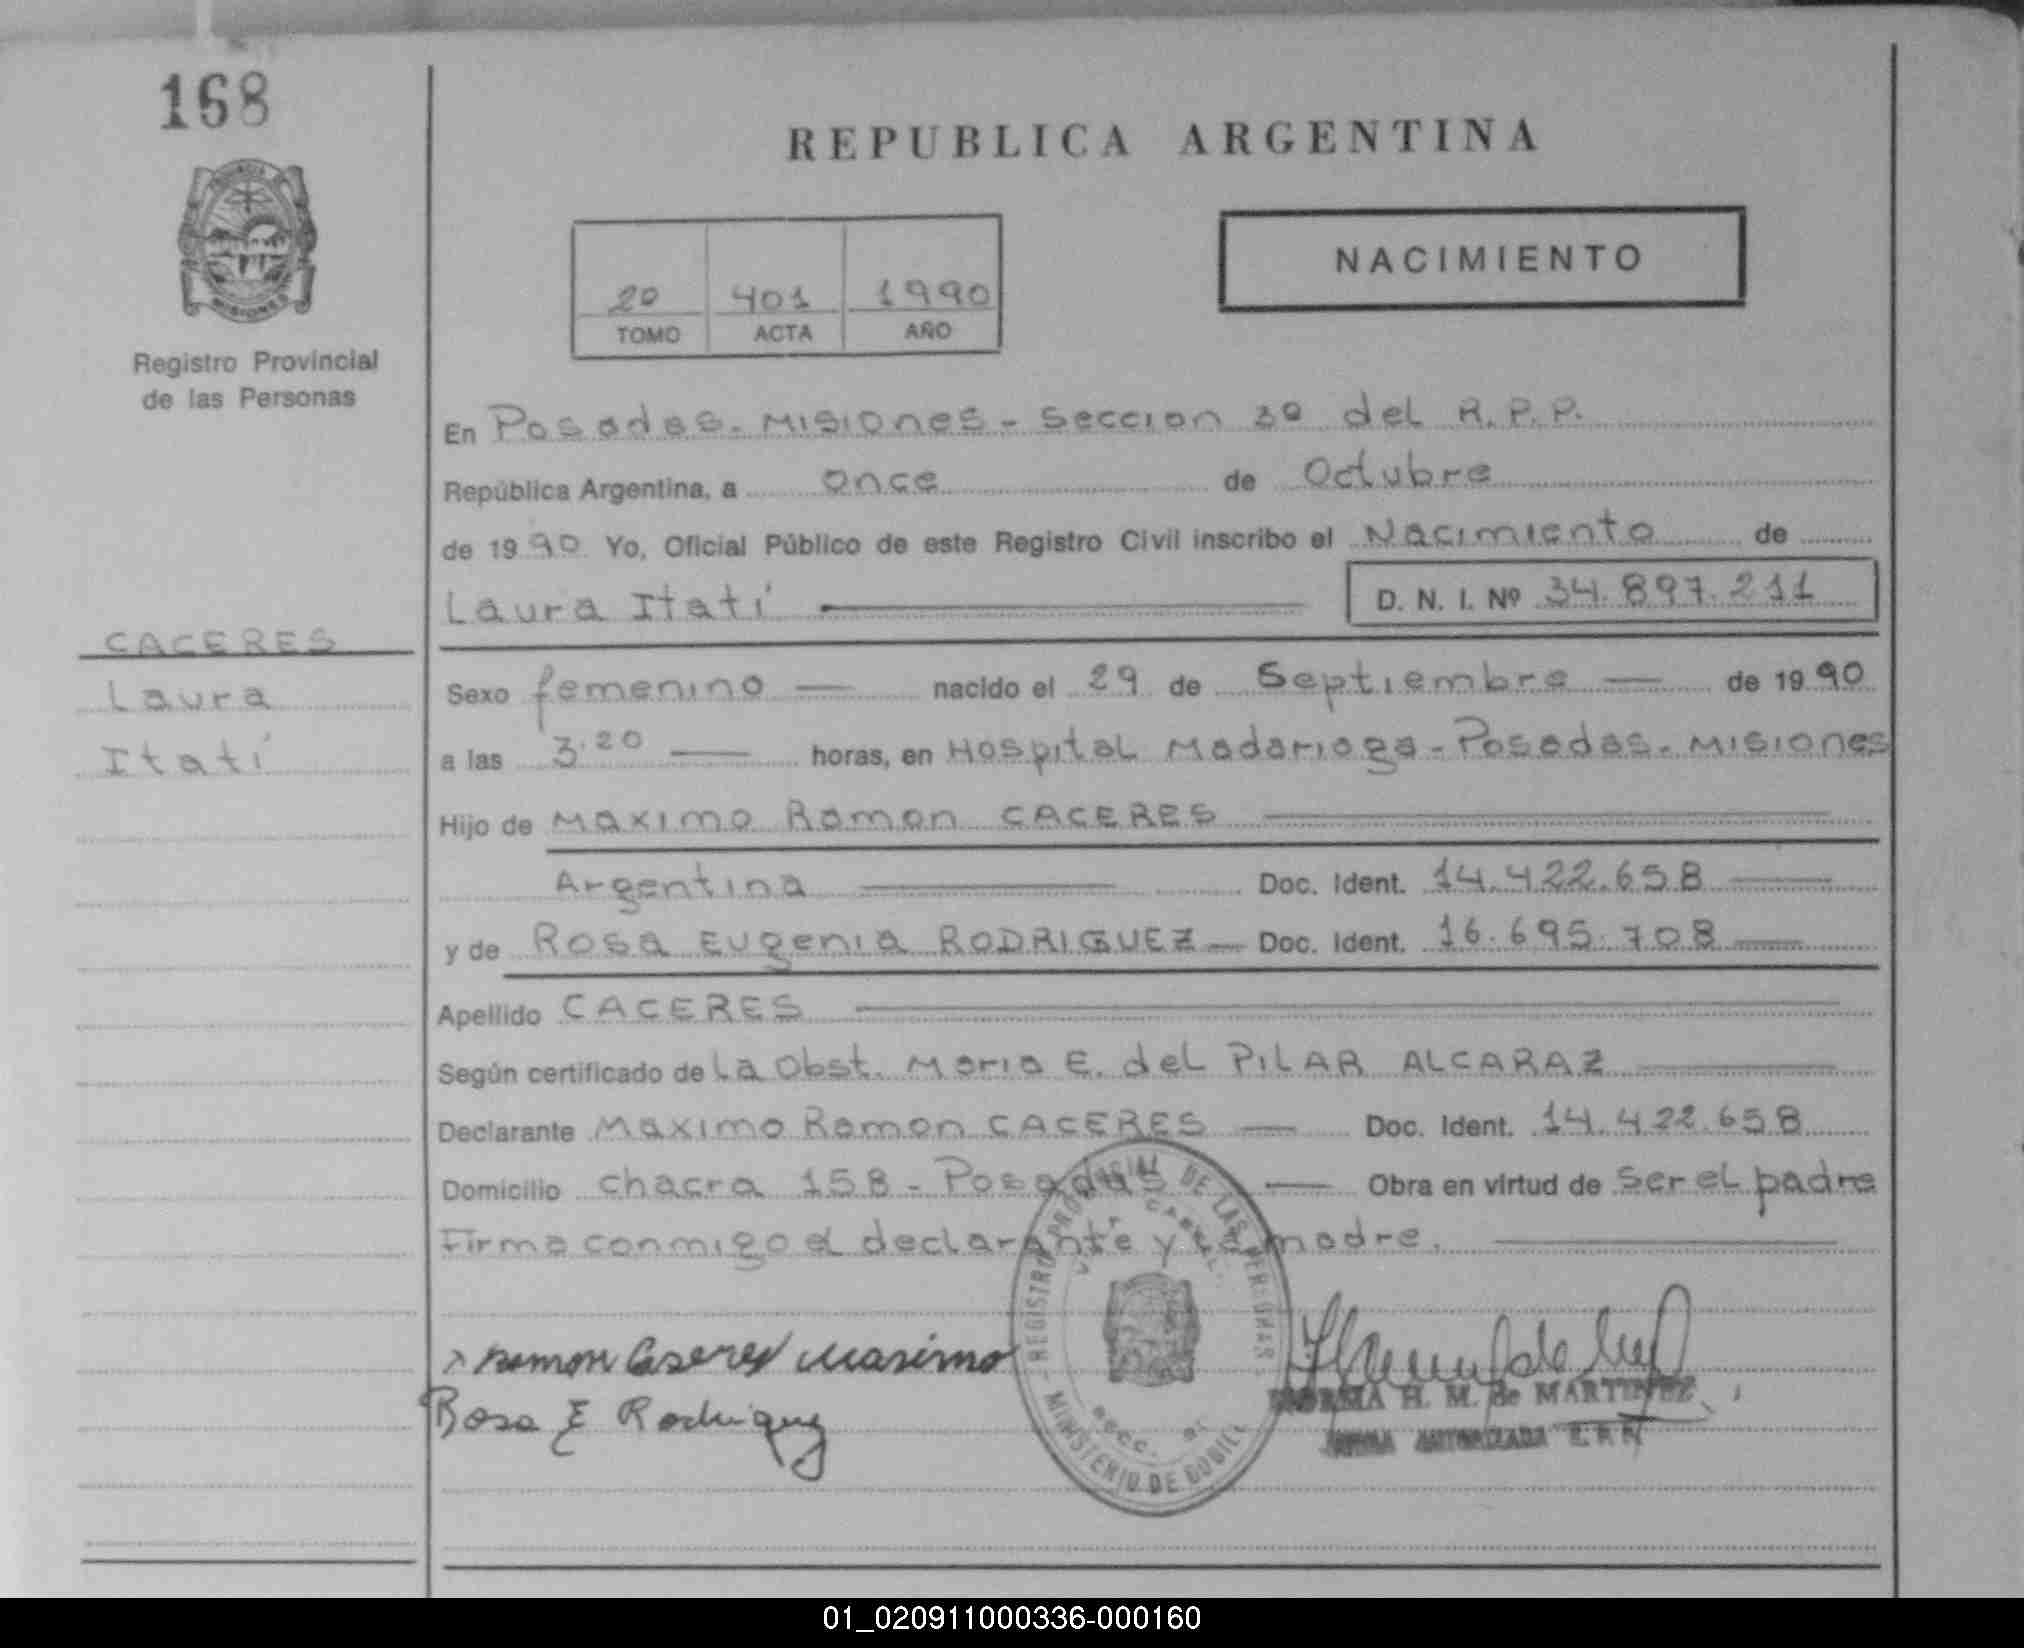 168
REPUBLICA ARGENTINA
NACIMIENTO
20 401 1990
TOMO ACTA AÑO
MISIONES
Registro Provincial
de las Personas
En Posadas. Misiones - Seccion 3º del R.P.P.
República Argentina, a once de Octubre
de 1990 Yo, Oficial Público de este Registro Civil inscribo el Nacimiento de
Laura Itatí D. N. I. Nº 34.897.211
CACERES
Laura
Itatí
Sexo femenino nacido el 29 de Septiembre de 1990
a las 3.20 horas, en Hospital Madariaga - Posadas. Misiones
Hijo de Maximo Ramon CACERES
Argentina Doc. Ident. 14.422.658
y de Rosa Eugenia RODRIGUEZ Doc. Ident. 16.695.708
Apellido CACERES
Según certificado de La Obst. Maria E. del PILAR ALCARAZ
Declarante Maximo Ramon CACERES Doc. Ident. 14.422.658
Domicilio chacra 158 - Posadas Obra en virtud de ser el padre
Firma conmigo el declarante y la madre.
REGISTRO PROVINCIAL DE LAS PERSONAS
MINISTERIO DE GOBIER
Ramon Caseres Masimo
Rosa E Rodriguez
NORMA H. M. de MARTINEZ
FIRMA AUTORIZADA
01_020911000336-000160